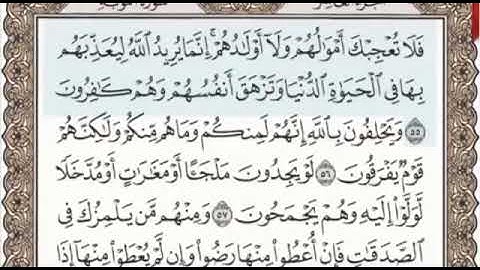 سورة التوبة
فَلَا تُعۡجِبۡكَ أَمۡوَٰلُهُمۡ وَلَآ أَوۡلَٰدُهُمۡۚ إِنَّمَا يُرِيدُ ٱللَّهُ لِيُعَذِّبَهُم
بِهَا فِي ٱلۡحَيَوٰةِ ٱلدُّنۡيَا وَتَزۡهَقَ أَنفُسُهُمۡ وَهُمۡ كَٰفِرُونَ
٥٥ وَيَحۡلِفُونَ بِٱللَّهِ إِنَّهُمۡ لَمِنكُمۡ وَمَا هُم مِّنكُمۡ وَلَٰكِنَّهُمۡ
قَوۡمٞ يَفۡرَقُونَ ٥٦ لَوۡ يَجِدُونَ مَلۡجَـًٔا أَوۡ مَغَٰرَٰتٍ أَوۡ مُدَّخَلٗا
لَّوَلَّوۡاْ إِلَيۡهِ وَهُمۡ يَجۡمَحُونَ ٥٧ وَمِنۡهُم مَّن يَلۡمِزُكَ فِي
ٱلصَّدَقَٰتِ فَإِنۡ أُعۡطُواْ مِنۡهَا رَضُواْ وَإِن لَّمۡ يُعۡطَوۡاْ مِنۡهَآ إِذَا